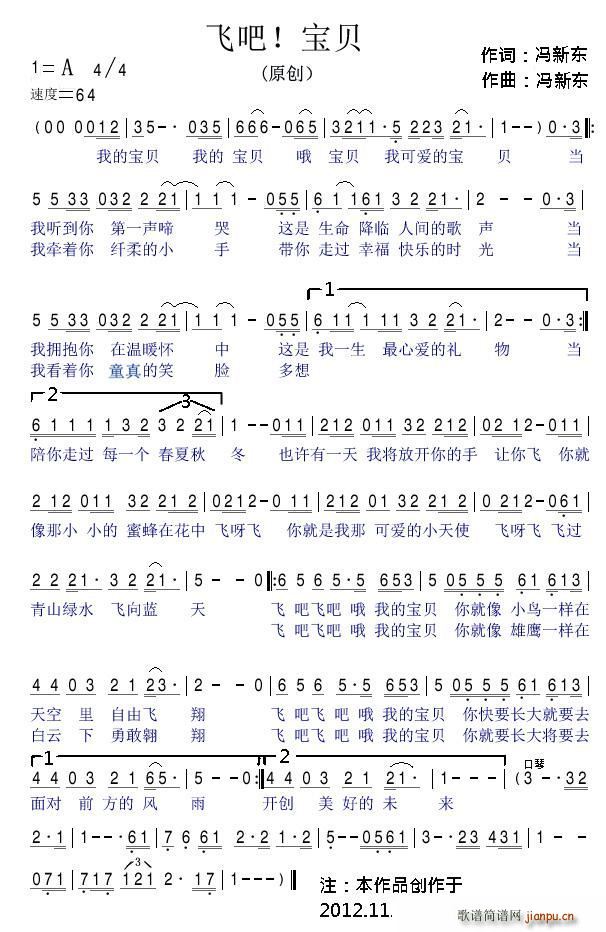 飞吧！宝贝
1=A 4/4
（原创）
作词：冯新东
速度=64
作曲：冯新东
(00 0012|35-·035|666-065|3211·5 223 21·|1--)0·3|:
我的宝贝 我的 宝贝 哦 宝贝 我可爱的宝 贝 当
5 533 032 2 21|1 1 1-055|6 1 161 3 2 21·|2--0·3|
我听到你 第一声啼 哭 这是 生命 降临 人间的歌 声 当
我牵着你 纤柔的小 手 带你 走过 幸福 快乐的时 光 当
1
5 533 032 2 21|1 1 1-055|6 11 1 11 3 2 21·|2--0·3:|
我拥抱你 在温暖怀 中 这是 我一生 最心爱的礼 物 当
我看着你 童真的笑 脸 多想
2
3
6 1 1 1 1 3 2 3 2 21|1--011|212 011 32 212|02 12-011|
陪你走过 每一个 春夏秋 冬 也许有一天 我将放开你的手 让你飞 你就
2 12 011 32 21 2|0212-011|212 01 032 21 2|0212-061|
像那小 小的 蜜蜂在花中 飞呀飞 你就是我那 可爱的小天使 飞呀飞 飞过
2 2 21·3 2 21·|5--0|:6 5 6 5 5·5 653|5 0555 61 613|
青山绿水 飞向蓝 天 飞 吧飞吧 哦 我的宝贝 你就像 小鸟一样在
飞 吧飞吧 哦 我的宝贝 你就像 雄鹰一样在
4 4 0 3 2 21 2 23·|2--0|6 5 6 5·5 653|5 05555 61 613|
天空 里 自由飞 翔 飞 吧飞 吧 哦 我的宝贝 你快要长大就要去
白云 下 勇敢翱 翔 飞 吧飞 吧 哦 我的宝贝 你就要长大将要去
1
2
口琴
4 4 0 3 2 1 65·|5--0:|4 4 0 3 2 1 21·|1---|(3-·32
面对 前 方的 风 雨 开创 美 好的 未 来
2·1|1--·61|7 661-·21|2·12·1|5--0561|3--·23 431|1---
3
071|717 121 2·17·|1---)|
注：本作品创作于
2012.11.
歌谱简谱网
jianpu.cn